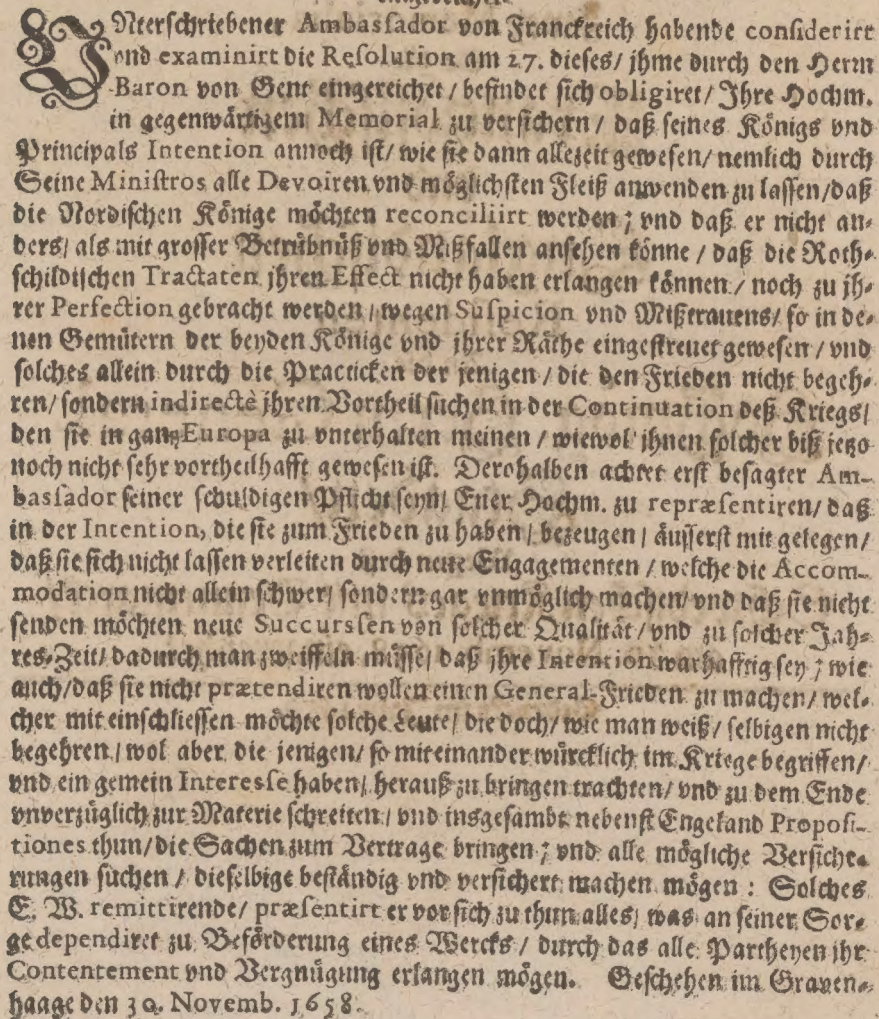 UNterschriebener Ambassador von Franckreich habende considerirt
vnd examinirt die Resolution am 27. dieses / jhme durch den Herrn
Baron von Gent eingereichet / befindet sich obligiret / Jhre Hochm.
in gegenwärtigem Memorial zu versichern / daß seines Königs vnd
Principals Intention annoch ist / wie sie dann allezeit gewesen / nemlich durch
Seine Ministros alle Devoiren vnd möglichsten Fleiß anwenden zu lassen / daß
die Nordischen Könige möchten reconciliirt werden ; vnd daß er nicht an-
ders / als mit grosser Betrübnüß vnd Mißfallen ansehen könne / daß die Roth-
schildischen Tractaten jhren Effect nicht haben erlangen können / noch zu jh-
rer Perfection gebracht werden / wegen Suspicion vnd Mißtrauens / so in de-
nen Gemütern der beyden Könige vnd jhrer Räthe eingestreuet gewesen / vnd
solches allein durch die Practicken der jenigen / die den Frieden nicht begeh-
ren / sondern indirectè jhren Vortheil suchen in der Continuation deß Kriegs /
den sie in gantz Europa zu vnterhalten meinen / wiewol jhnen solcher biß jetzo
noch nicht sehr vortheilhafft gewesen ist. Derohalben achtet erst besagter Am-
bassador seiner schuldigen Pflicht seyn / Euer Hochm. zu repræsentiren / daß
in der Intention, die sie zum Frieden zu haben / bezeugen / äusserst mit gelegen /
daß sie sich nicht lassen verleiten durch neue Engagementen / welche die Accom-
modation nicht allein schwer / sondern gar vnmöglich machen / vnd daß sie nicht
senden möchten neue Succurssen von solcher Qualität / vnd zu solcher Jah-
res-Zeit / dadurch man zweiffeln müsse / daß jhre Intention warhafftig sey ; wie
auch / daß sie nicht prætendiren wollen einen General-Frieden zu machen / wel-
cher mit einschliessen möchte solche Leute / die doch / wie man weiß / selbigen nicht
begehren / wol aber die jenigen / so miteinander würcklich im Kriege begriffen /
vnd ein gemein Interesse haben / herauß zu bringen trachten / vnd zu dem Ende
vnverzüglich zur Materie schreiten / vnd insgesambt nebenst Engeland Proposi-
tiones thun / die Sachen zum Vertrage bringen ; vnd alle mögliche Versiche-
rungen suchen / dieselbige beständig vnd versichert machen mögen : Solches
E. W. remittirende / præsentirt er vor sich zu thun alles / was an seiner Sor-
ge dependiret zu Beförderung eines Wercks / durch das alle Partheyen jhr
Contentement vnd Vergnügung erlangen mögen. Geschehen im Graven-
haage den 30. Novemb. 1658.